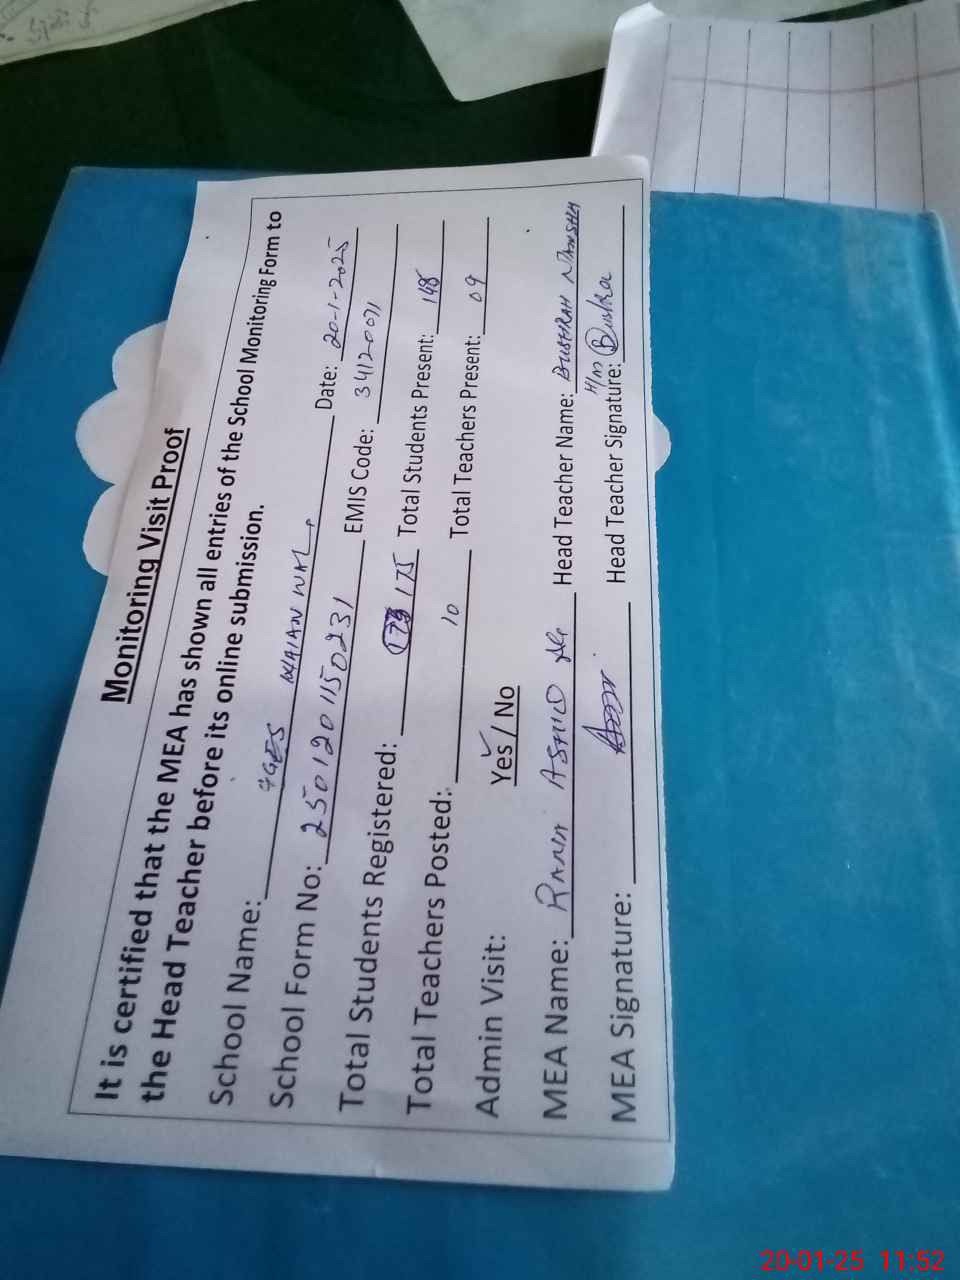 Monitoring Visit Proof
It is certified that the MEA has shown all entries of the School Monitoring Form to
the Head Teacher before its online submission.
School Name: GGES WAIAN WAL. Date: 20-1-2025
School Form No: 2501201150231 EMIS Code: 34120071
Total Students Registered: 175 Total Students Present: 148
Total Teachers Posted: 10 Total Teachers Present: 09
Admin Visit: Yes / No
MEA Name: RANA ASHID Ali Head Teacher Name: BUSHRAH
MEA Signature: Head Teacher Signature: H/M Bushra
20-01-25 11:52